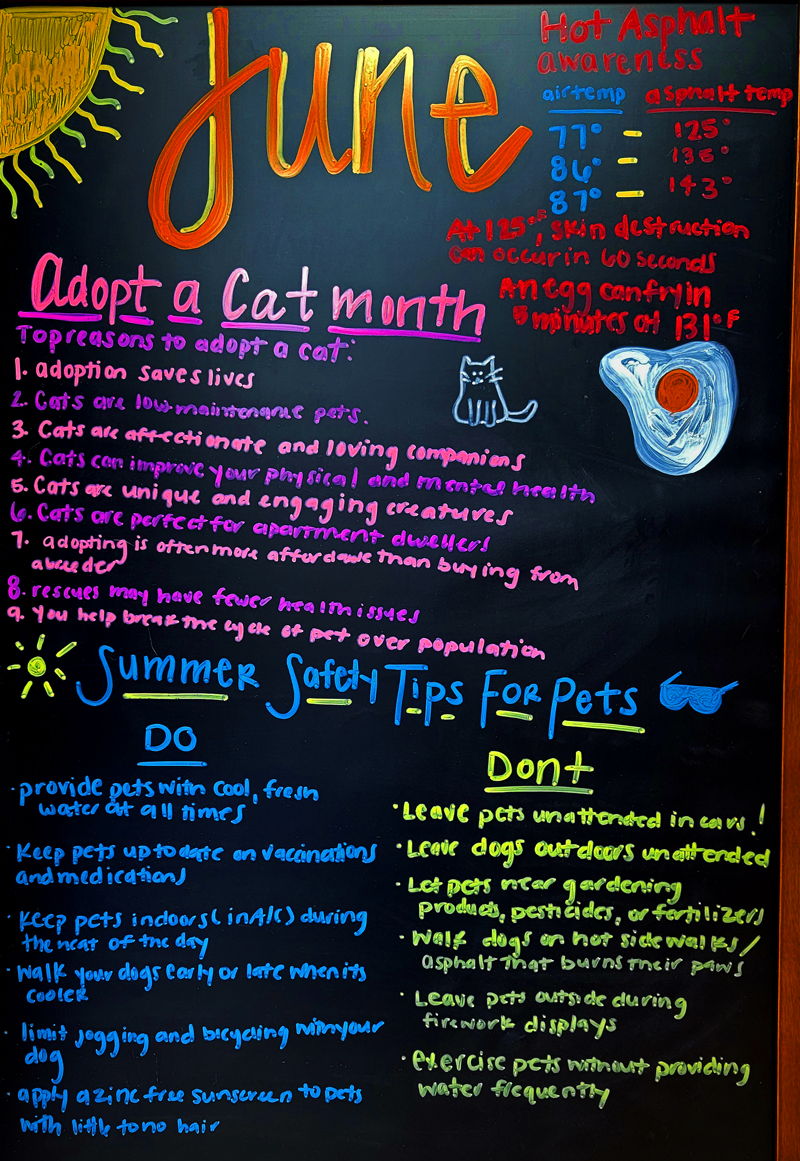 June
Hot Asphalt
awareness
air temp asphalt temp
77° - 125°
86° - 135°
87° - 143°
At 125°F, skin destruction
can occur in 60 seconds
An egg can fry in
5 minutes at 131°F
Adopt a Cat month
Top reasons to adopt a cat:
1. adoption saves lives
2. Cats are low-maintenance pets.
3. Cats are affectionate and loving companions
4. Cats can improve your physical and mental health
5. Cats are unique and engaging creatures
6. Cats are perfect for apartment dwellers
7. adopting is often more affordable than buying from
a breeder
8. rescues may have fewer health issues
9. You help break the cycle of pet over population
Summer Safety Tips For Pets
DO
· provide pets with cool, fresh
water at all times
· Keep pets up to date on vaccinations
and medications
· Keep pets indoors (in A/C) during
the heat of the day
· walk your dogs early or late when its
cooler
· limit jogging and bicycling with your
dog
· apply a zinc free sunscreen to pets
with little to no hair
Dont
· Leave pets unattended in cars!
· Leave dogs outdoors unattended
· Let pets near gardening
products, pesticides, or fertilizers
· Walk dogs on hot sidewalks/
asphalt that burns their paws
· Leave pets outside during
firework displays
· exercise pets without providing
water frequently